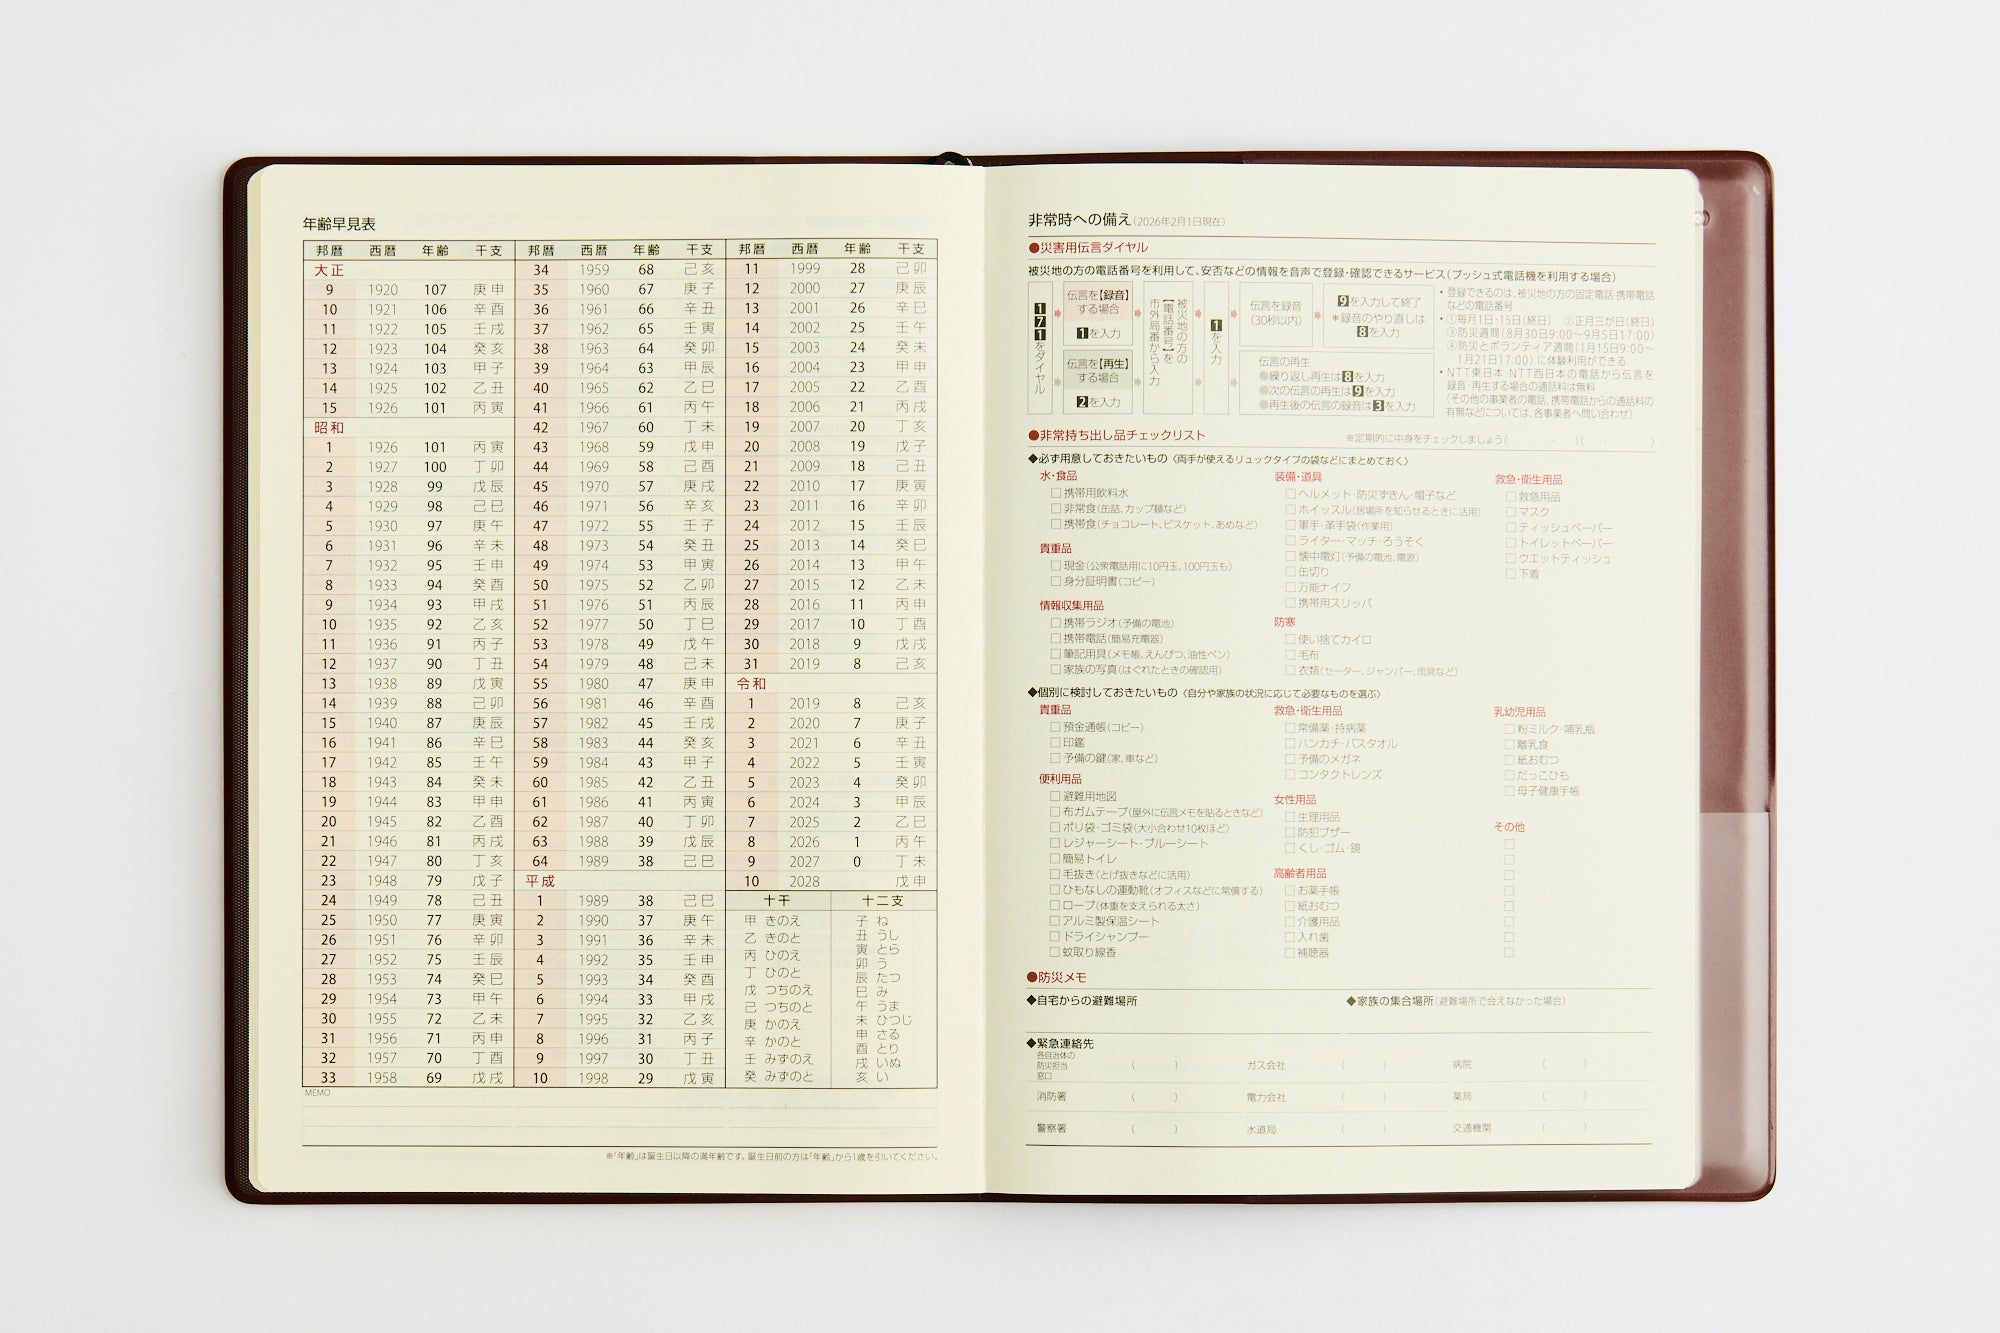 年齢早見表
邦暦 西暦 年齢 干支
大正
9 1920 107 庚申
10 1921 106 辛酉
11 1922 105 壬戌
12 1923 104 癸亥
13 1924 103 甲子
14 1925 102 乙丑
15 1926 101 丙寅
昭和
1 1926 101 丙寅
2 1927 100 丁卯
3 1928 99 戊辰
4 1929 98 己巳
5 1930 97 庚午
6 1931 96 辛未
7 1932 95 壬申
8 1933 94 癸酉
9 1934 93 甲戌
10 1935 92 乙亥
11 1936 91 丙子
12 1937 90 丁丑
13 1938 89 戊寅
14 1939 88 己卯
15 1940 87 庚辰
16 1941 86 辛巳
17 1942 85 壬午
18 1943 84 癸未
19 1944 83 甲申
20 1945 82 乙酉
21 1946 81 丙戌
22 1947 80 丁亥
23 1948 79 戊子
24 1949 78 己丑
25 1950 77 庚寅
26 1951 76 辛卯
27 1952 75 壬辰
28 1953 74 癸巳
29 1954 73 甲午
30 1955 72 乙未
31 1956 71 丙申
32 1957 70 丁酉
33 1958 69 戊戌
邦暦 西暦 年齢 干支
34 1959 68 己亥
35 1960 67 庚子
36 1961 66 辛丑
37 1962 65 壬寅
38 1963 64 癸卯
39 1964 63 甲辰
40 1965 62 乙巳
41 1966 61 丙午
42 1967 60 丁未
43 1968 59 戊申
44 1969 58 己酉
45 1970 57 庚戌
46 1971 56 辛亥
47 1972 55 壬子
48 1973 54 癸丑
49 1974 53 甲寅
50 1975 52 乙卯
51 1976 51 丙辰
52 1977 50 丁巳
53 1978 49 戊午
54 1979 48 己未
55 1980 47 庚申
56 1981 46 辛酉
57 1982 45 壬戌
58 1983 44 癸亥
59 1984 43 甲子
60 1985 42 乙丑
61 1986 41 丙寅
62 1987 40 丁卯
63 1988 39 戊辰
64 1989 38 己巳
平成
1 1989 38 己巳
2 1990 37 庚午
3 1991 36 辛未
4 1992 35 壬申
5 1993 34 癸酉
6 1994 33 甲戌
7 1995 32 乙亥
8 1996 31 丙子
9 1997 30 丁丑
10 1998 29 戊寅
邦暦 西暦 年齢 干支
11 1999 28 己卯
12 2000 27 庚辰
13 2001 26 辛巳
14 2002 25 壬午
15 2003 24 癸未
16 2004 23 甲申
17 2005 22 乙酉
18 2006 21 丙戌
19 2007 20 丁亥
20 2008 19 戊子
21 2009 18 己丑
22 2010 17 庚寅
23 2011 16 辛卯
24 2012 15 壬辰
25 2013 14 癸巳
26 2014 13 甲午
27 2015 12 乙未
28 2016 11 丙申
29 2017 10 丁酉
30 2018 9 戊戌
31 2019 8 己亥
令和
1 2019 8 己亥
2 2020 7 庚子
3 2021 6 辛丑
4 2022 5 壬寅
5 2023 4 癸卯
6 2024 3 甲辰
7 2025 2 乙巳
8 2026 1 丙午
9 2027 0 丁未
10 2028 戊申
十干
甲 きのえ
乙 きのと
丙 ひのえ
丁 ひのと
戊 つちのえ
己 つちのと
庚 かのえ
辛 かのと
壬 みずのえ
癸 みずのと
十二支
子 ね
丑 うし
寅 とら
卯 う
辰 たつ
巳 み
午 うま
未 ひつじ
申 さる
酉 とり
戌 いぬ
亥 い
MEMO
※「年齢」は誕生日以降の満年齢です。誕生日前の方は「年齢」から1歳を引いてください。
非常時への備え(2026年2月1日現在)
●災害用伝言ダイヤル
被災地の方の電話番号を利用して、安否などの情報を音声で登録・確認できるサービス(プッシュ式電話機を利用する場合)
171をダイヤル
伝言を【録音】
する場合
1を入力
伝言を【再生】
する場合
2を入力
被災地の方の
【電話番号】を
市外局番から入力
1を入力
伝言を録音
(30秒以内)
9を入力して終了
*録音のやり直しは
8を入力
伝言の再生
●繰り返し再生は8を入力
●次の伝言の再生は9を入力
●再生後の伝言の録音は3を入力
・登録できるのは、被災地の方の固定電話・携帯電話
などの電話番号
・①毎月1日・15日(終日) ②正月三が日(終日)
③防災週間(8月30日9:00~9月5日17:00)
④防災とボランティア週間(1月15日9:00~
1月21日17:00)に体験利用ができる
・NTT東日本・NTT西日本の電話から伝言を
録音・再生する場合の通話料は無料
(その他の事業者の電話、携帯電話からの通話料の
有無などについては、各事業者へ問い合わせ)
●非常持ち出し品チェックリスト
※定期的に中身をチェックしましょう( ・ ・ )( ・ ・ )
◆必ず用意しておきたいもの〈両手が使えるリュックタイプの袋などにまとめておく〉
水・食品
□携帯用飲料水
□非常食(缶詰、カップ麺など)
□携帯食(チョコレート、ビスケット、あめなど)
貴重品
□現金(公衆電話用に10円玉、100円玉も)
□身分証明書(コピー)
情報収集用品
□携帯ラジオ(予備の電池)
□携帯電話(簡易充電器)
□筆記用具(メモ帳、えんぴつ、油性ペン)
□家族の写真(はぐれたときの確認用)
装備・道具
□ヘルメット・防災ずきん・帽子など
□ホイッスル(居場所を知らせるときに活用)
□軍手・革手袋(作業用)
□ライター・マッチ・ろうそく
□懐中電灯(予備の電池、電源)
□缶切り
□万能ナイフ
□携帯用スリッパ
防寒
□使い捨てカイロ
□毛布
□衣類(セーター、ジャンパー、雨具など)
救急・衛生用品
□救急用品
□マスク
□ティッシュペーパー
□トイレットペーパー
□ウエットティッシュ
□下着
◆個別に検討しておきたいもの〈自分や家族の状況に応じて必要なものを選ぶ〉
貴重品
□預金通帳(コピー)
□印鑑
□予備の鍵(家、車など)
便利用品
□避難用地図
□布ガムテープ(屋外に伝言メモを貼るときなど)
□ポリ袋・ゴミ袋(大小合わせ10枚ほど)
□レジャーシート・ブルーシート
□簡易トイレ
□毛抜き(とげ抜きなどに活用)
□ひもなしの運動靴(オフィスなどに常備する)
□ロープ(体重を支えられる太さ)
□アルミ製保温シート
□ドライシャンプー
□蚊取り線香
救急・衛生用品
□常備薬・持病薬
□ハンカチ・バスタオル
□予備のメガネ
□コンタクトレンズ
女性用品
□生理用品
□防犯ブザー
□くし・ゴム・鏡
高齢者用品
□お薬手帳
□紙おむつ
□介護用品
□入れ歯
□補聴器
乳幼児用品
□粉ミルク・哺乳瓶
□離乳食
□紙おむつ
□だっこひも
□母子健康手帳
その他
□
□
□
□
□
□
□
□
●防災メモ
◆自宅からの避難場所
◆家族の集合場所(避難場所で会えなかった場合)
◆緊急連絡先
各自治体の
防災担当
窓口
( ) ガス会社 ( ) 病院 ( )
消防署 ( ) 電力会社 ( ) 薬局 ( )
警察署 ( ) 水道局 ( ) 交通機関 ( )